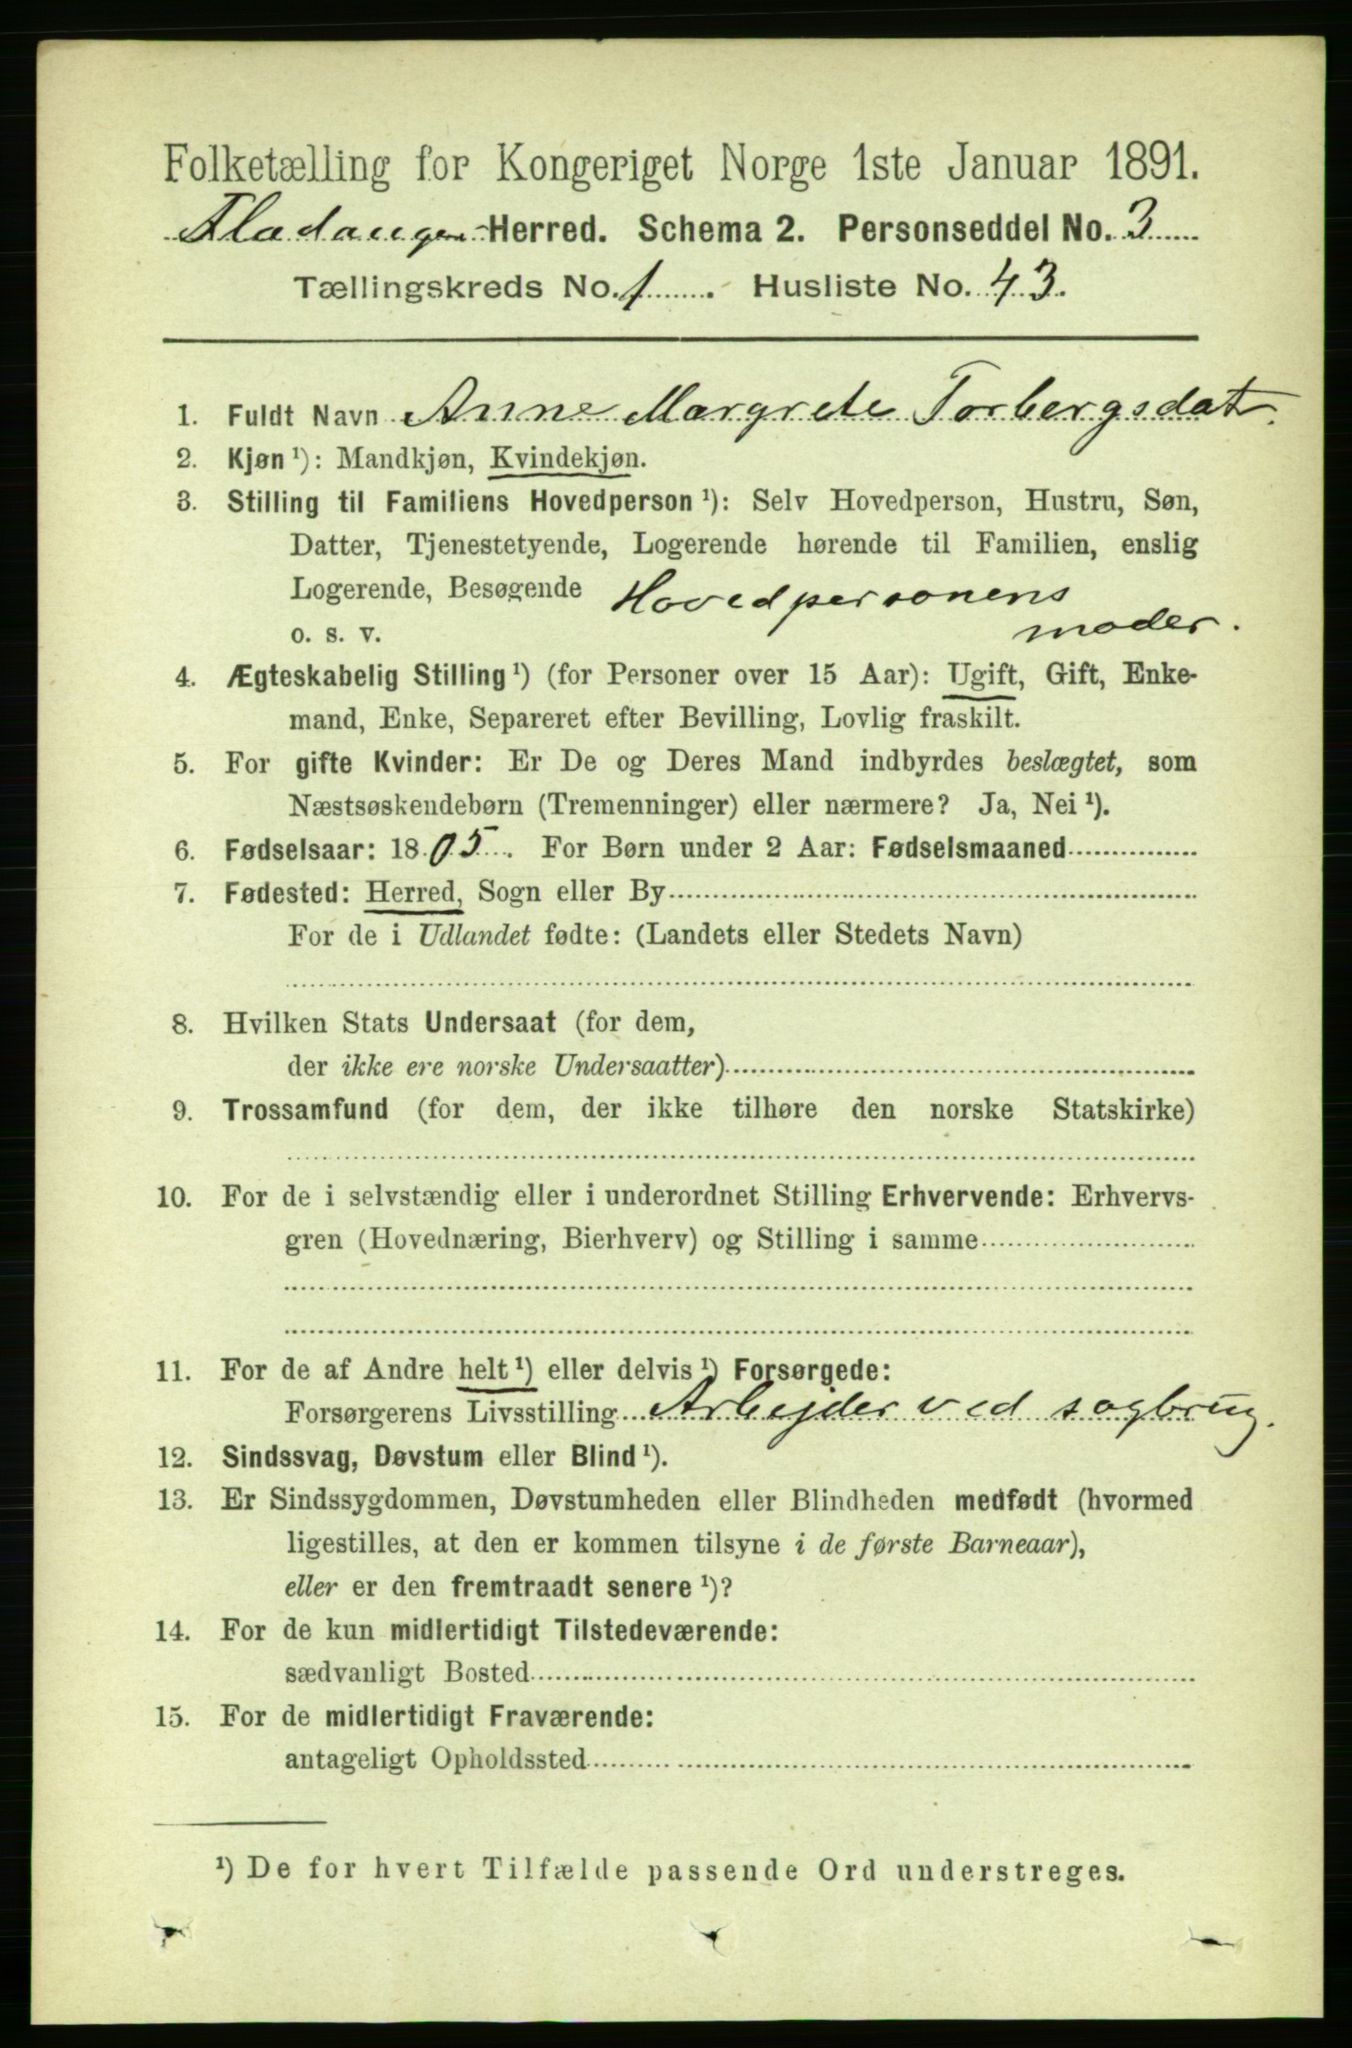 Folketælling for Kongeriget Norge 1ste Januar 1891.
Fladanger Herred. Schema 2. Personseddel No. 3
Tællingskreds No. 1. Husliste No. 43.
1. Fuldt Navn Anne Margrete Torbergsdat.
2. Kjøn ¹): Mandkjøn, Kvindekjøn.
3. Stilling til Familiens Hovedperson ¹): Selv Hovedperson, Hustru, Søn,
Datter, Tjenestetyende, Logerende hørende til Familien, enslig
Logerende, Besøgende Hovedpersonens
o. s. v. moder.
4. Ægteskabelig Stilling ¹) (for Personer over 15 Aar): Ugift, Gift, Enke-
mand, Enke, Separeret efter Bevilling, Lovlig fraskilt.
5. For gifte Kvinder: Er De og Deres Mand indbyrdes beslægtet, som
Næstsøskendebørn (Tremenninger) eller nærmere? Ja, Nei ¹).
6. Fødselsaar: 1805. For Børn under 2 Aar: Fødselsmaaned
7. Fødested: Herred, Sogn eller By
For de i Udlandet fødte: (Landets eller Stedets Navn)
8. Hvilken Stats Undersaat (for dem,
der ikke ere norske Undersaatter)
9. Trossamfund (for dem, der ikke tilhøre den norske Statskirke)
10. For de i selvstændig eller i underordnet Stilling Erhvervende: Erhvervs-
gren (Hovednæring, Bierhverv) og Stilling i samme
11. For de af Andre helt ¹) eller delvis ¹) Forsørgede:
Forsørgerens Livsstilling Arbejder ved sagbrug.
12. Sindssvag, Døvstum eller Blind ¹).
13. Er Sindssygdommen, Døvstumheden eller Blindheden medfødt (hvormed
ligestilles, at den er kommen tilsyne i de første Barneaar),
eller er den fremtraadt senere ¹)?
14. For de kun midlertidigt Tilstedeværende:
sædvanligt Bosted
15. For de midlertidigt Fraværende:
antageligt Opholdssted
¹) De for hvert Tilfælde passende Ord understreges.